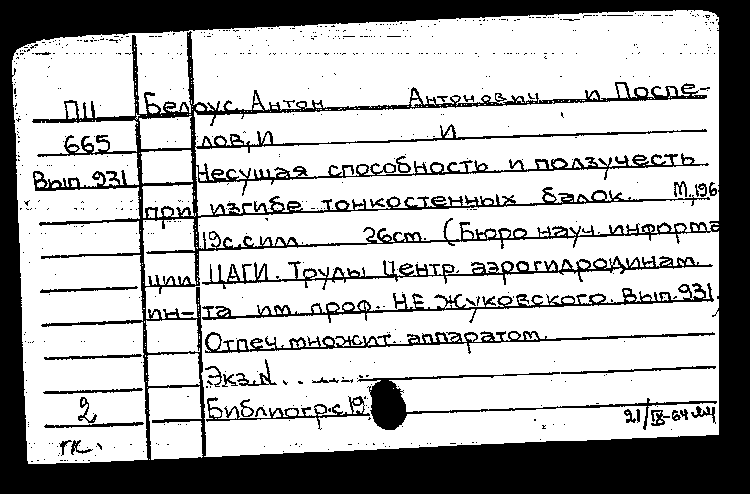 ПII Белоус, Антон Антонович и Поспе-
665 лов, И И
Вып. 931 Несущая способность и ползучесть
при изгибе тонкостенных балок. М, 196
19 с. с илл. 26 cm. (Бюро науч. информа
ции ЦАГИ. Труды Центр. аэрогидродинам.
ин-та им. проф. Н.Е. Жуковского. Вып. 931.
Отпеч. множит. аппаратом.
Экз. N. . . ......
2 Библиогр. с. 19
21/IX-64
гк.